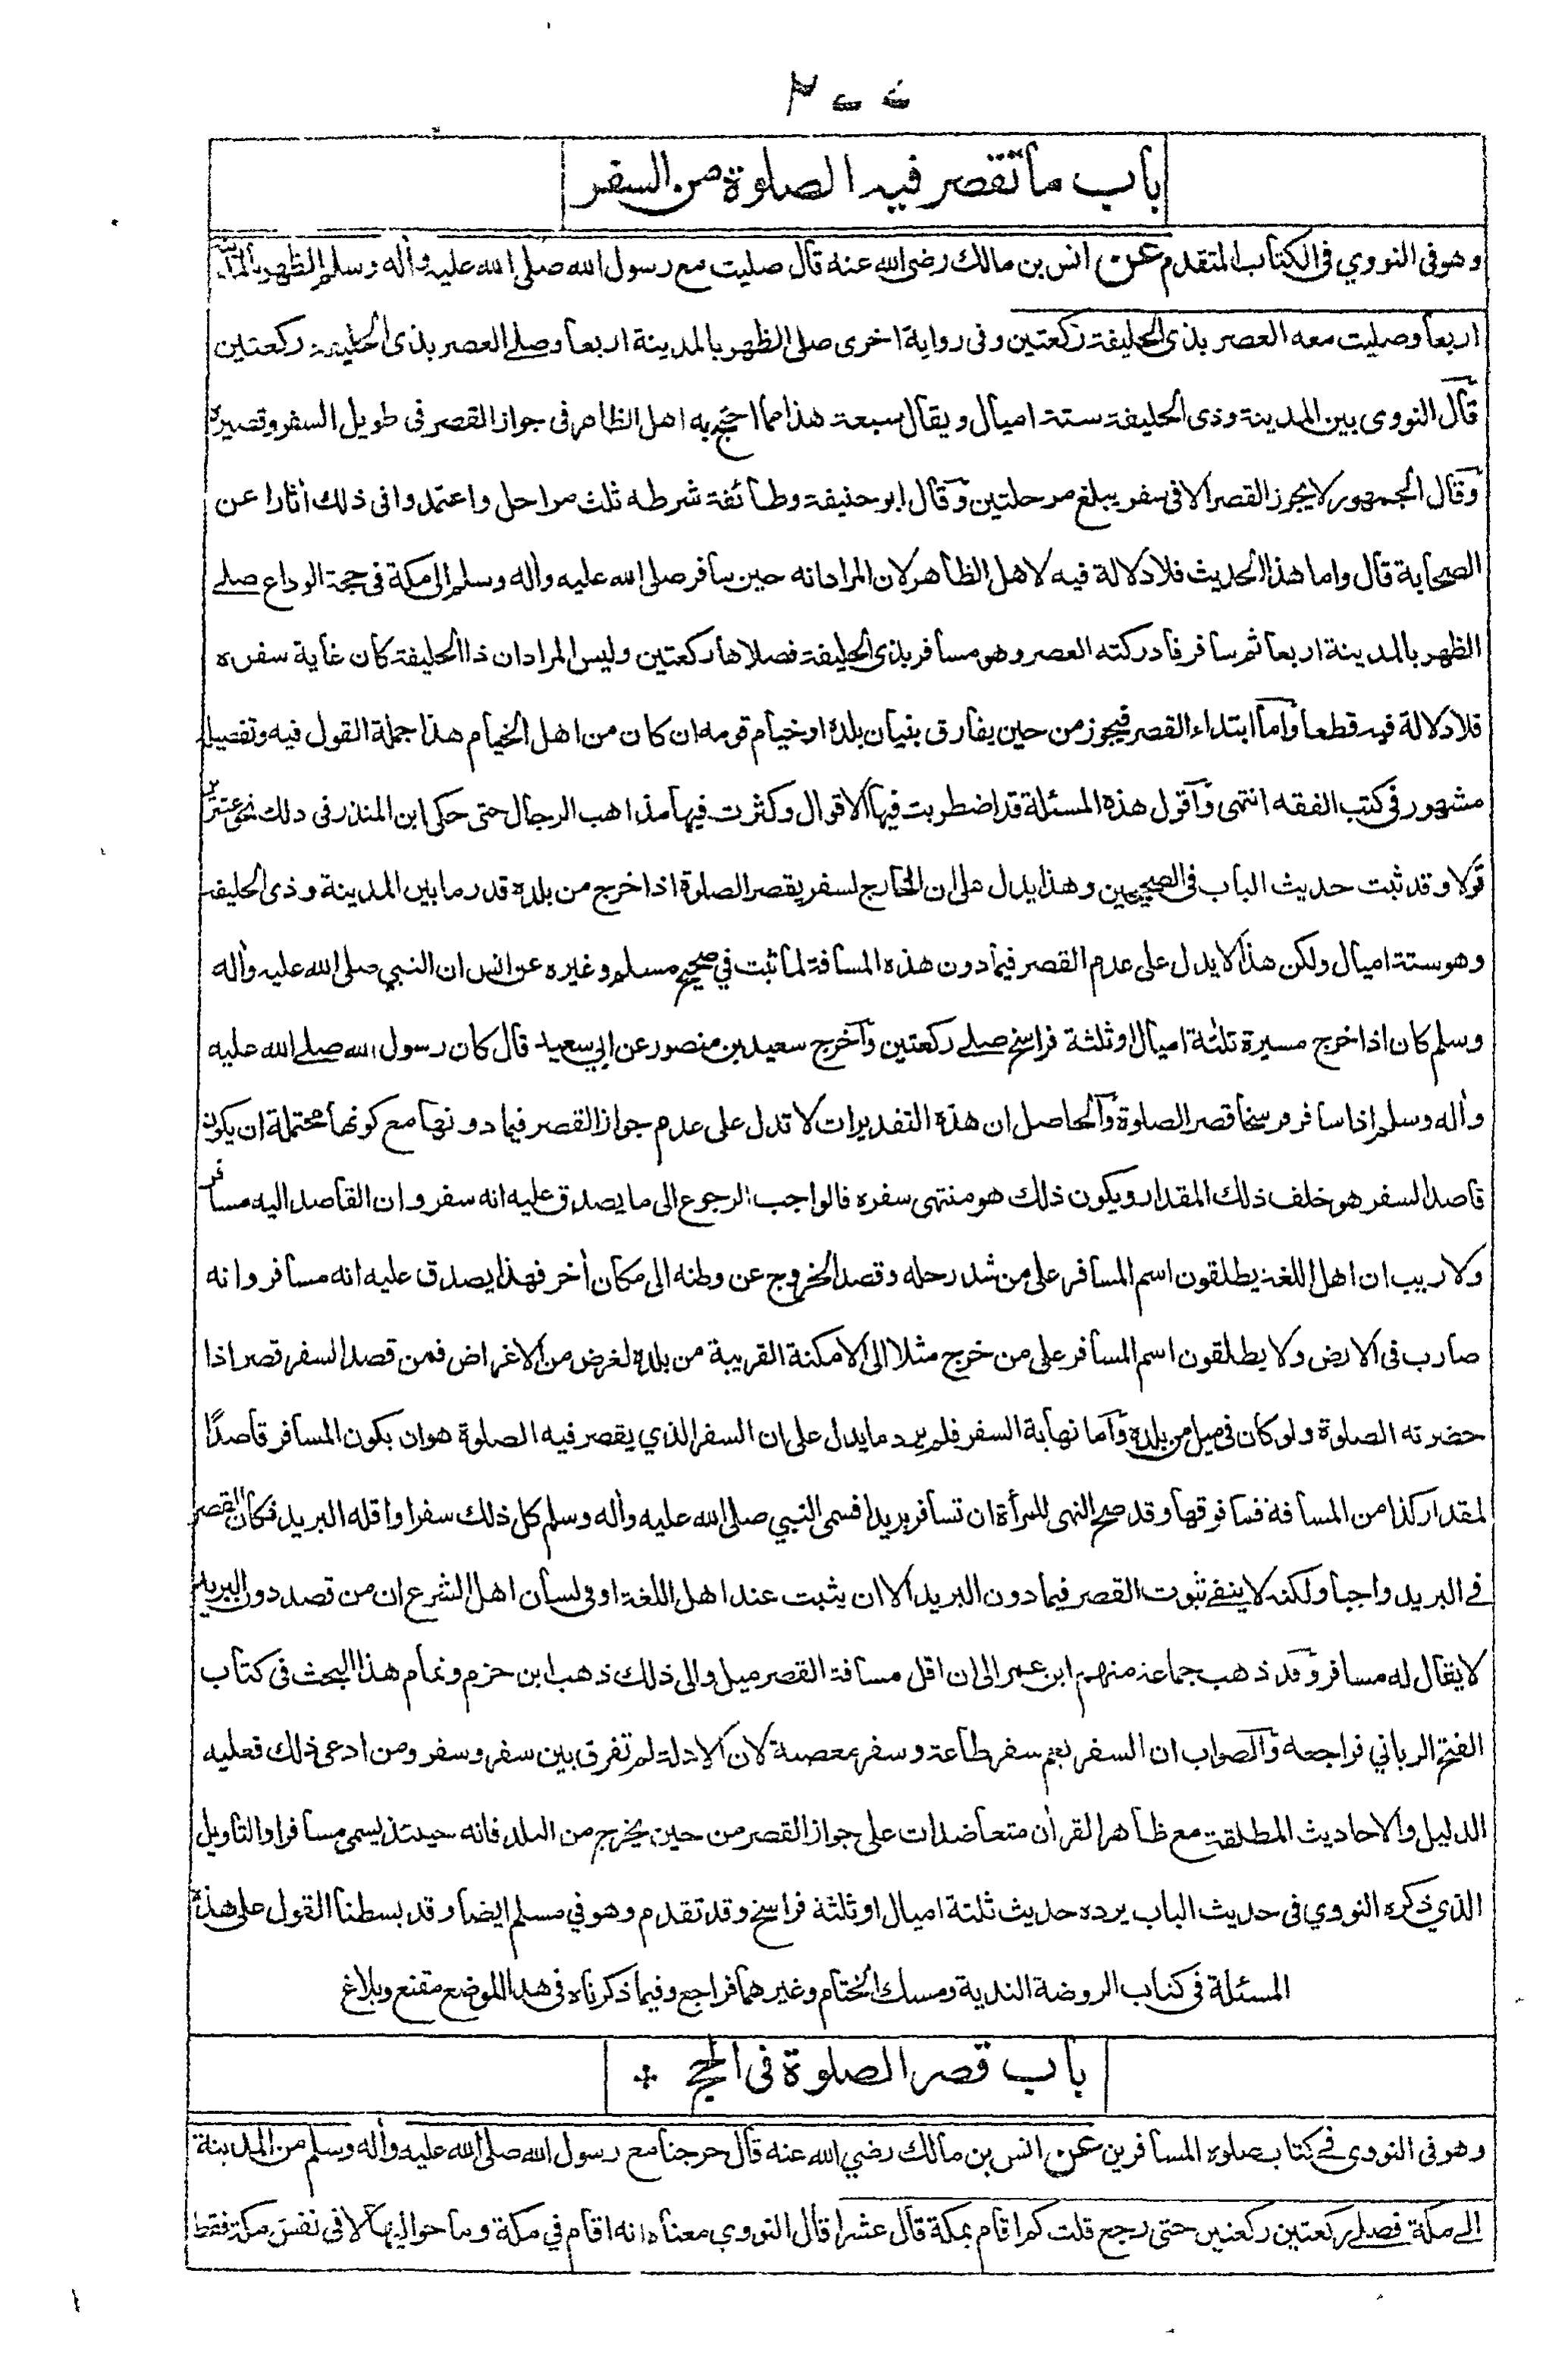 باب ما تقصر فيه الصلوة من السفر
وهو فى النووي فى الكتاب المتقدم عن انس بن مالك رضى الله عنه قال صليت مع رسول الله صلى الله عليه وأله وسلم الظهر بالمدينة
اربعا وصليت معه العصر بذى الحليفة ركعتين وفى رواية اخرى صلى الظهر بالمدينة اربعا وصلے العصر بذى الحليفة ركعتين
قال النووى بين المدينة وذى الحليفة ستة اميال ويقال سبعة هذا مما احتج به اهل الظاهر فى جواز القصر فى طويل السفر وقصيره
وقال الجمهور لا يجوز القصر الا فى سفر يبلغ مرحلتين وقال ابو حنيفة وطائفة شرطه ثلث مراحل واعتمدوا فى ذلك أثارا عن
الصحابة قال واما هذا الحديث فلا دلالة فيه لاهل الظاهر لان المراد انه حين سافر صلى الله عليه وأله وسلم الى مكة فى حجة الوداع صلے
الظهر بالمدينة اربعا ثم سافر فادركته العصر وهو مسافر بذى الحليفة فصلاها ركعتين وليس المراد ان ذا الحليفة كان غاية سفره
فلا دلالة فيه قطعا واما ابتداء القصر فيجوز من حين يفارق بنيان بلده او خيام قومه ان كان من اهل الخيام هذا جملة القول فيه وتفصيله
مشهور فى كتب الفقه انتهى واقول هذه المسئلة قد اضطربت فيها الاقوال وكثرت فيها مذاهب الرجال حتى حكى ابن المنذر فى ذلك نحو عشرين
قولا وقد ثبت حديث الباب فى الصحيحين وهذا يدل على ان الخارج لسفر يقصر الصلوة اذا خرج من بلده قدر ما بين المدينة وذى الحليفة
وهو ستة اميال ولكن هذا لا يدل على عدم القصر فيما دون هذه المسافة لما ثبت في صحيح مسلم وغيره عن انس ان النبي صلى الله عليه وأله
وسلم كان اذا خرج مسيرة ثلثة اميال او ثلثة فراسخ صلے ركعتين وأخرج سعيد بن منصور عن ابي سعيد قال كان رسول الله صلے الله عليه
وأله وسلم اذا سافر فرسخا قصر الصلوة والحاصل ان هذه التقديرات لا تدل على عدم جواز القصر فيما دونها مع كونها محتملة ان يكون
قاصدا لسفر هو خلف ذلك المقدار ويكون ذلك هو منتهى سفره فالواجب الرجوع الى ما يصدق عليه انه سفر وان القاصد اليه مسافر
ولا ريب ان اهل اللغة يطلقون اسم المسافر على من شد رحله وقصد الخروج عن وطنه الى مكان أخر فهذا يصدق عليه انه مسافر وانه
ضارب فى الارض ولا يطلقون اسم المسافر على من خرج مثلا الى الامكنة القريبة من بلده لغرض من الاغراض فمن قصد السفر قصر اذا
حضرته الصلوة ولو كان فى ميل من بلده واما نهاية السفر فلم يرد ما يدل على ان السفر الذي يقصر فيه الصلوة هو ان يكون المسافر قاصدًا
لمقدار كذا من المسافة فما فوقها وقد صح النهى للمرأة ان تسافر بريدا فسمى النبي صلى الله عليه وأله وسلم كل ذلك سفرا واقله البريد فكان القصر
فے البريد واجبا ولكنه لا ينفے ثبوت القصر فيما دون البريد الا ان يثبت عند اهل اللغة او فى لسان اهل الشرع ان من قصد دون البريد
لا يقال له مسافر وقد ذهب جماعة منهم ابن عمر الى ان اقل مسافة القصر ميل والى ذلك ذهب ابن حزم وتمام هذا البحث فى كتاب
الفتح الرباني فراجعه والصواب ان السفر يعم سفر طاعة وسفر معصية لان الادلة لم تفرق بين سفر وسفر ومن ادعى ذلك فعليه
الدليل والاحاديث المطلقة مع ظاهر القرأن متعاضدات على جواز القصر من حين يخرج من البلد فانه حينئذ يسمى مسافرا والتاويل
الذي ذكره النووي فى حديث الباب يرده حديث ثلثة اميال او ثلثة فراسخ وقد تقدم وهو في مسلم ايضا وقد بسطنا القول على هذه
المسئلة فى كتاب الروضة الندية ومسك الختام وغيرهما فراجع وفيما ذكرناه فى هذا الموضع مقنع وبلاغ
باب قصر الصلوة فى الحج
وهو فى النووى فے كتاب صلوة المسافرين عن انس بن مالك رضي الله عنه قال خرجنا مع رسول الله صلى الله عليه وأله وسلم من المدينة
الے مكة فصلے ركعتين ركعتين حتى رجع قلت كم اقام بمكة قال عشرا قال النووي معناه انه اقام في مكة وما حواليها لا فى نفس مكة فقط